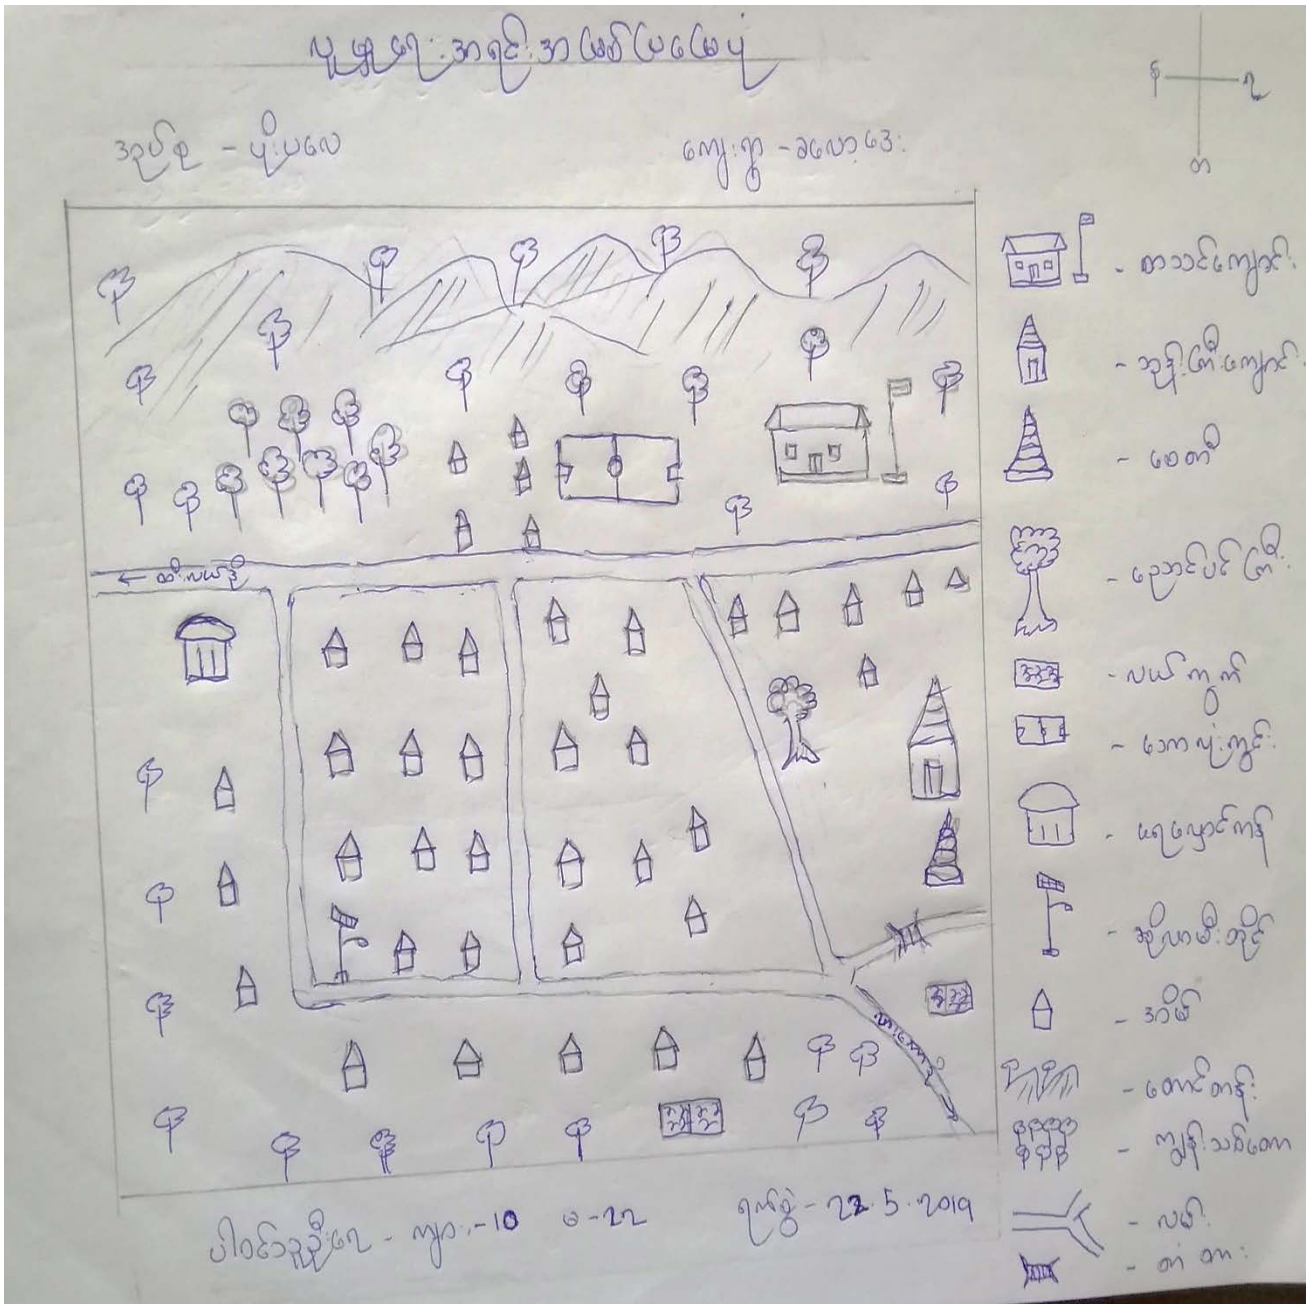 လူမှုရေးအရင်းအမြစ်ပြမြေပုံ
အုပ်စု - ပိုးပလေ
ကျေးရွာ - ခလော့ဒေး
န
ရ
တ
- စာသင်ကျောင်း
- ဘုန်းကြီးကျောင်း
- စေတီ
- ညောင်ပင်ကြီး
- လယ်ကွက်
- ဘောလုံးကွင်း
- ရေလှောင်ကန်
- ဆိုလာမီးတိုင်
- အိမ်
- တောင်တန်း
- ကျွန်းသစ်တော
- လမ်း
- တံတား
← ထီးလယ်ဒို
ပါဝင်သူဦးရေ - ကျား-10 မ-၁၂ ရက်စွဲ-22.5.2019